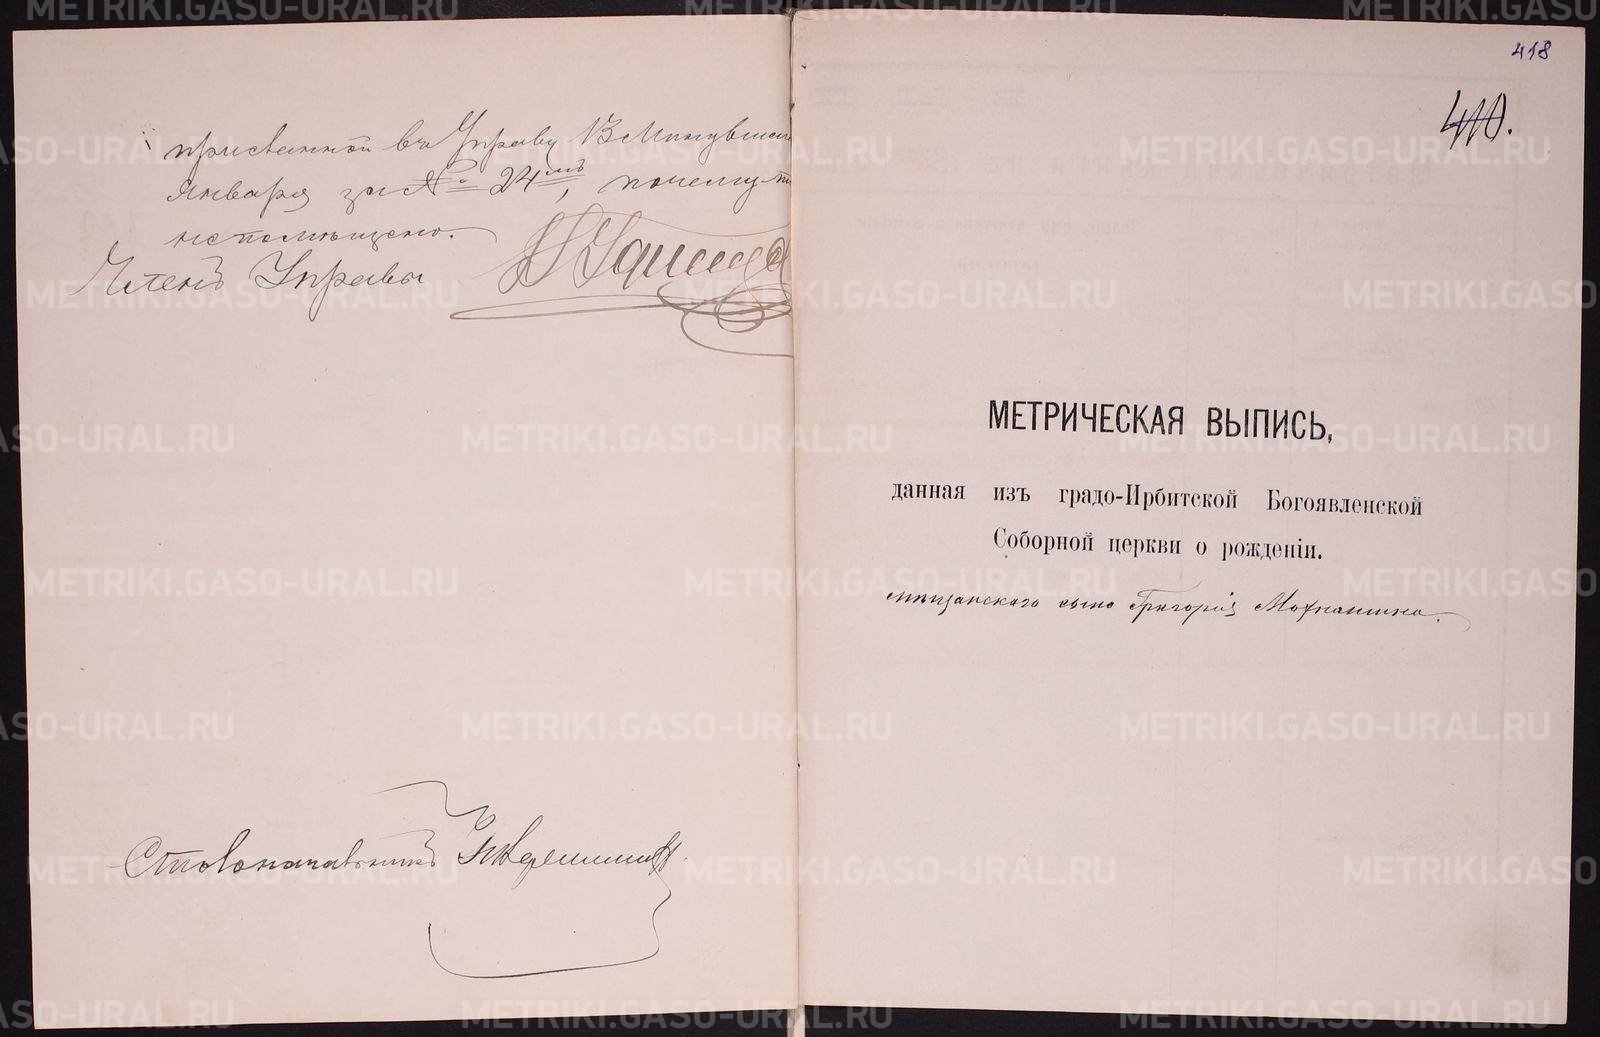 присланной въ Управу В Минувшем
Января за № 24мъ, почему и
не помѣщено.
Членъ Управы
Столоначальникъ
418
410.
МЕТРИЧЕСКАЯ ВЫПИСЬ,
данная изъ градо-Ирбитской Богоявленской
Соборной церкви о рожденіи.
мѣщанскаго сына Григорія Мохнашина.
METRIKI.GASO-URAL.RU